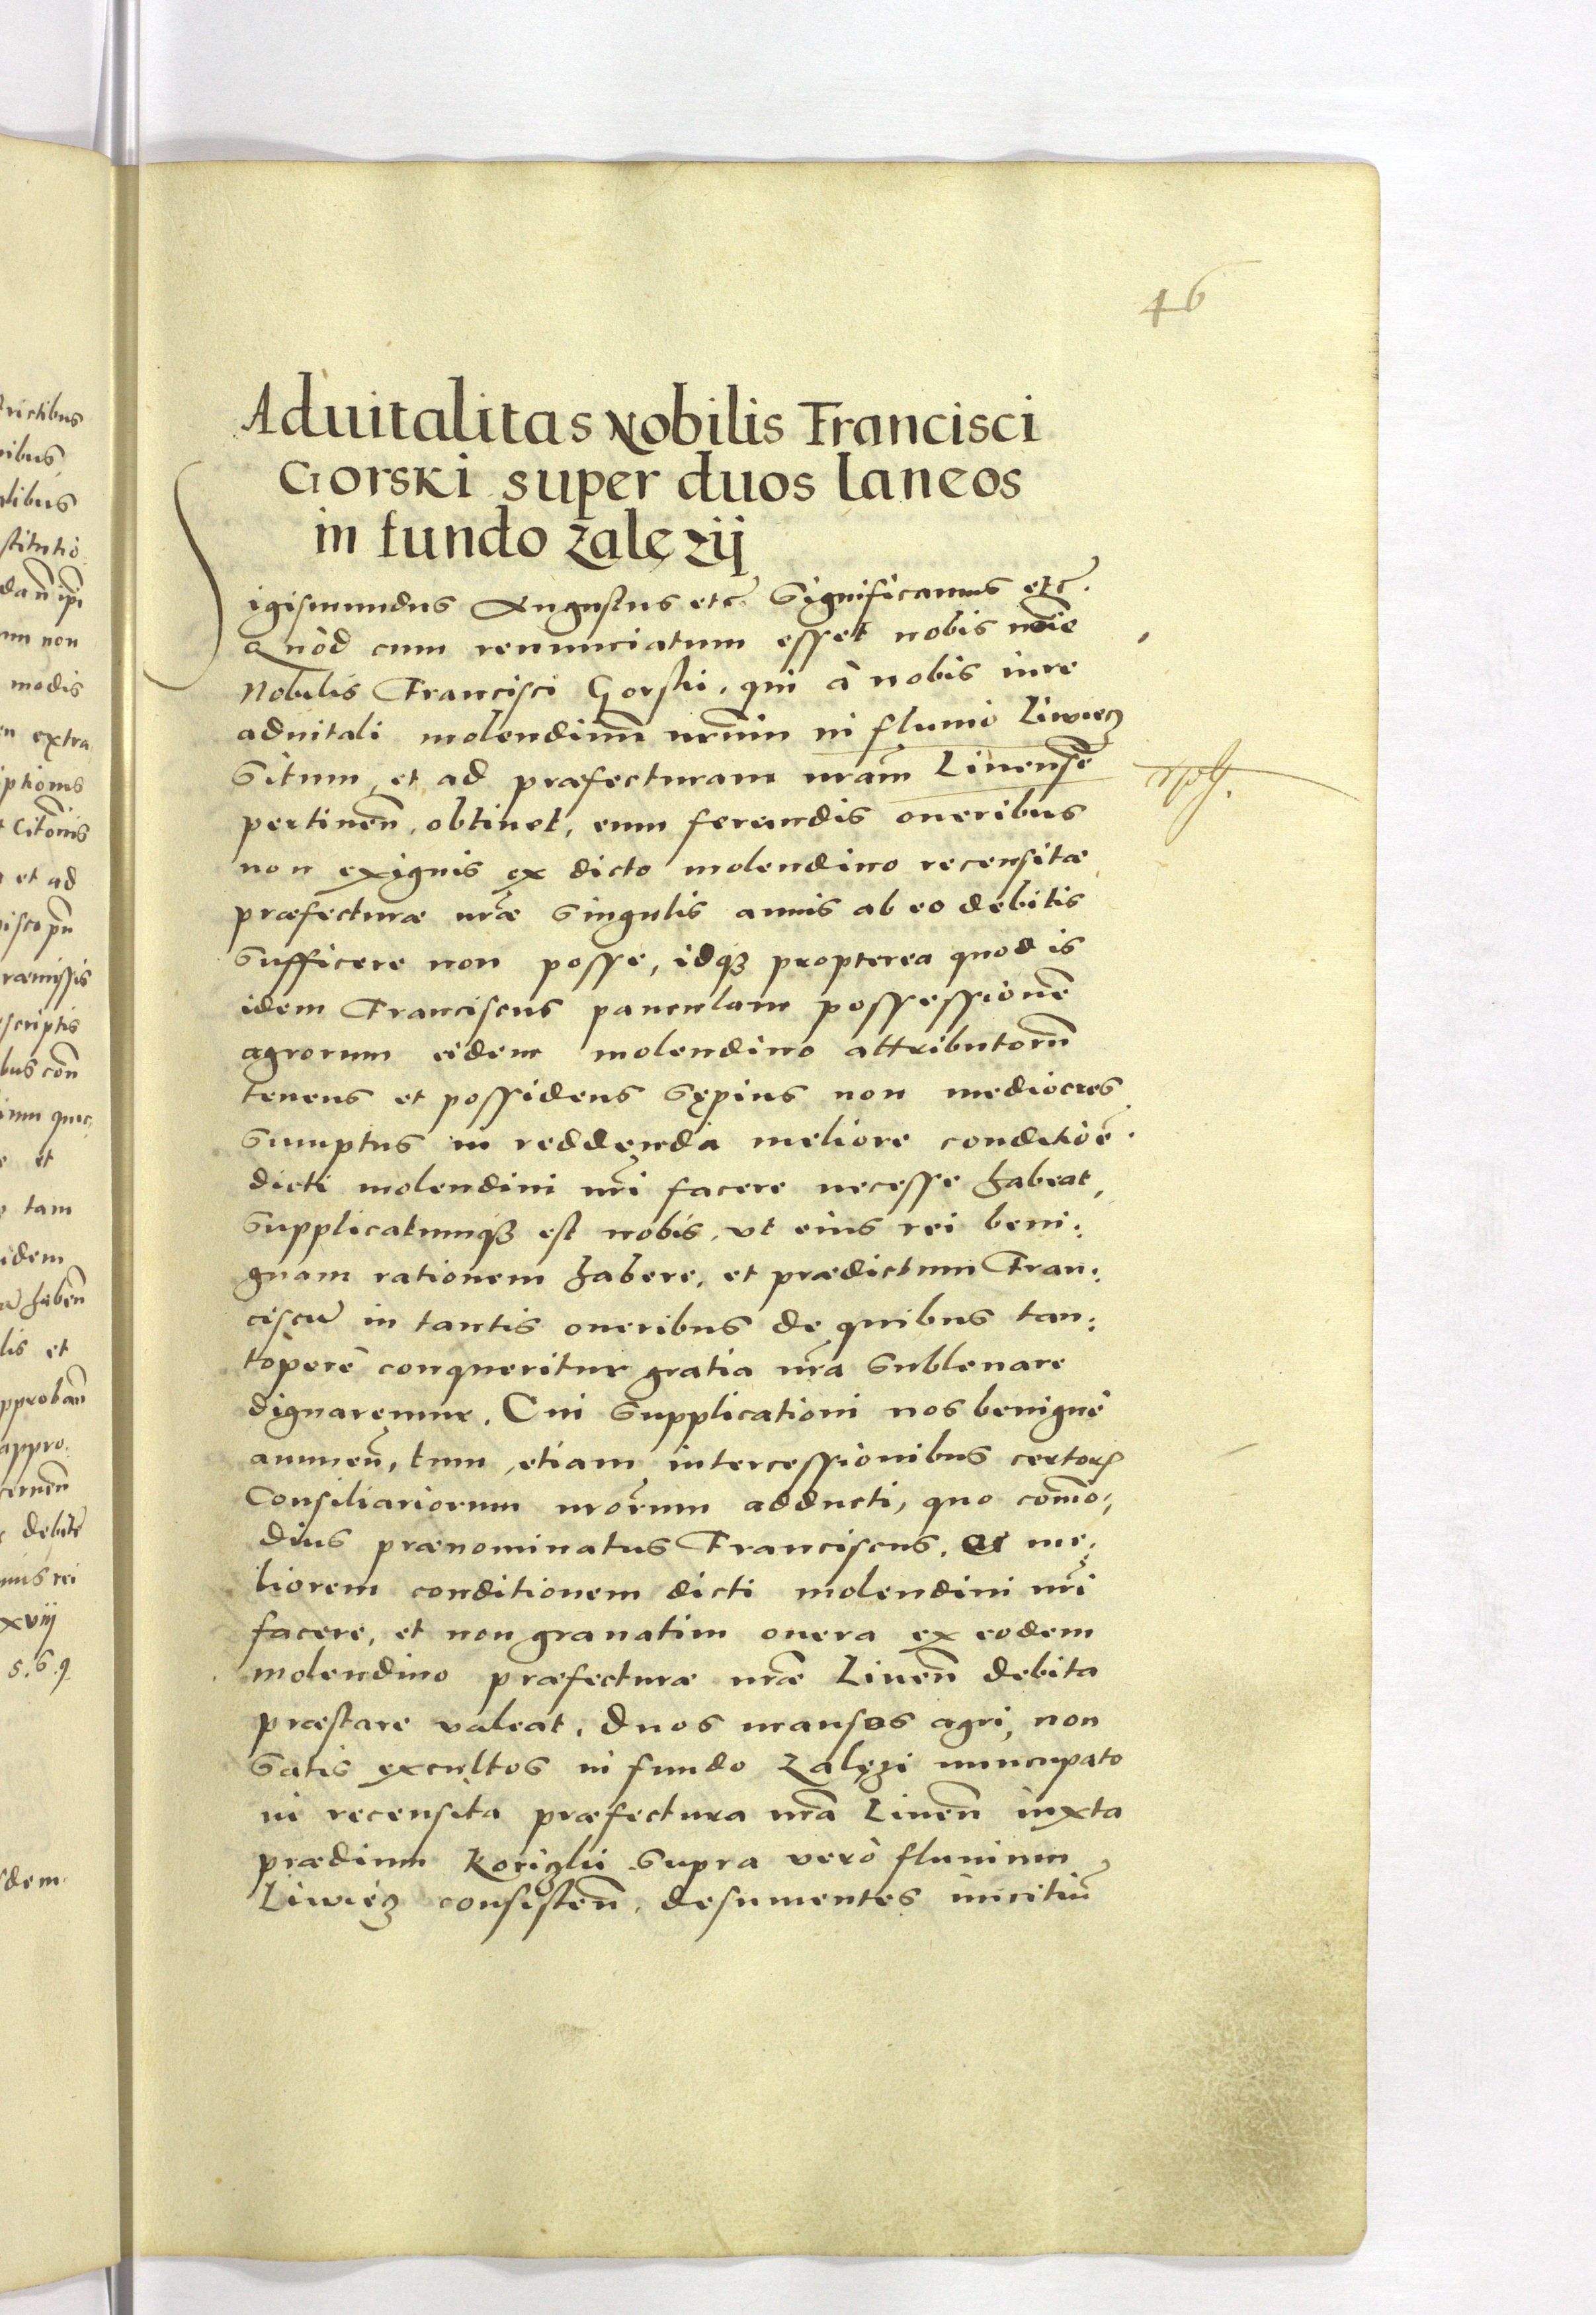 46
Aduitalitas Nobilis Francisci
Gorski super duos laneos
in fundo zalęzij
Sigismundus Augustus etc̃ Significamus etc̃.
Quòd cum renunciatum esset nobis noĩe
Nobilis Francisci Gorski, qui à nobis iure
aduitali molendinũ nr̃um in fluuio Liwiecz
situm, et ad præfecturam nr̃am Liuensẽ
pertineñ, obtinet, eum ferendis oneribus
non exiguis ex dicto molendino recensitæ
præfecturæ nr̃æ singulis annis ab eo debitis
sufficere non posse, idqꝫ propterea quod is
idem Franciscus pauculam possessionẽ
agrorum eidem molendino attributorũ
tenens et possidens sępius non mediocres
sumptus in reddenda meliore conditiõe
dicti molendini nr̃i facere necesse habeat,
supplicatumqꝫ est nobis, vt eius rei beni:
gnam rationem habere, et prædictum Fran:
ciscũ in tantis oneribus de quibus tan:
toperè conqueritur gratia nr̃a subleuare
dignaremur. Cui supplicationi nos benignè
annueñ, tum etiam intercessionibus certorꝝ
Consiliariorum nr̃orum adducti, quo com̃o:
dius prænominatus Franciscus, et me:
liorem conditionem dicti molendini nr̃i
facere, et non grauatim onera ex eodem
molendino præfecturæ nr̃æ Liueñ debita
præstare valeat, duos mansos agri, non
satis excultos in fundo Zalęzi nuncupato
in recensita præfectura nr̃a Liueñ iuxta
prædium Korizlii supra verò fluuium
Liwiecz consisteñ, desumentes inicitiũ